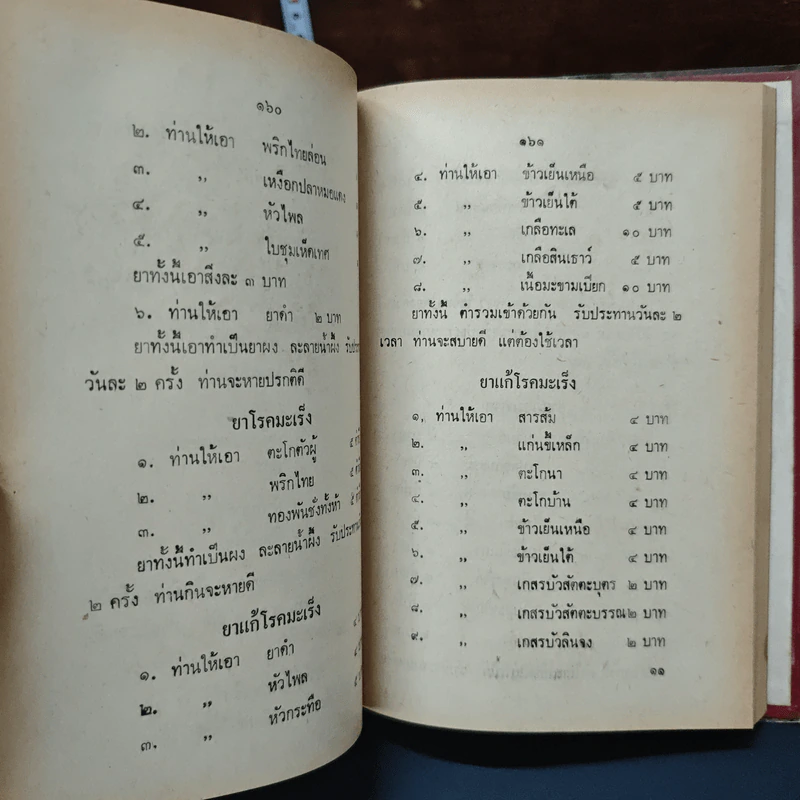 ๑๖๐
๒. ท่านให้เอา พริกไทยล่อน
๓. ,, เหงือกปลาหมอแดง
๔. ,, หัวไพล
๕. ,, ใบชุมเห็ดเทศ
ยาทั้งนี้เอาสิ่งละ ๓ บาท
๖. ท่านให้เอา ยาดำ ๒ บาท
ยาทั้งนี้เอาทำเป็นยาผง ละลายน้ำผึ้ง
วันละ ๒ ครั้ง ท่านจะหายปรกติดี
ยาโรคมะเร็ง
๑. ท่านให้เอา ตะโกตัวผู้
๒. ,, พริกไทย
๓. ,, ทองพันชั่งทั้งห้า
ยาทั้งนี้ทำเป็นผง ละลายน้ำผึ้ง
๒ ครั้ง ท่านกินจะหายดี
ยาแก้โรคมะเร็ง
๑. ท่านให้เอา ยาดำ
๒. ,, หัวไพล
๓. ,, หัวกระทือ
๑๖๑
๔. ท่านให้เอา ข้าวเย็นเหนือ ๕ บาท
๕. ,, ข้าวเย็นใต้ ๕ บาท
๖. ,, เกลือทะเล ๑๐ บาท
๗. ,, เกลือสินเธาว์ ๕ บาท
๘. ,, เนื้อมะขามเปียก ๑๐ บาท
ยาทั้งนี้ ตำรวมเข้าด้วยกัน รับประทานวันละ ๒
เวลา ท่านจะสบายดี แต่ต้องใช้เวลา
ยาแก้โรคมะเร็ง
๑. ท่านให้เอา สารส้ม ๔ บาท
๒. ,, แก่นขี้เหล็ก ๔ บาท
๓. ,, ตะโกนา ๔ บาท
๔. ,, ตะโกบ้าน ๔ บาท
๕. ,, ข้าวเย็นเหนือ ๔ บาท
๖. ,, ข้าวเย็นใต้ ๔ บาท
๗. ,, เกสรบัวสัตตะบุตร ๒ บาท
๘. ,, เกสรบัวสัตตะบรรณ ๒ บาท
๙. ,, เกสรบัวลินจง ๒ บาท
๑๑